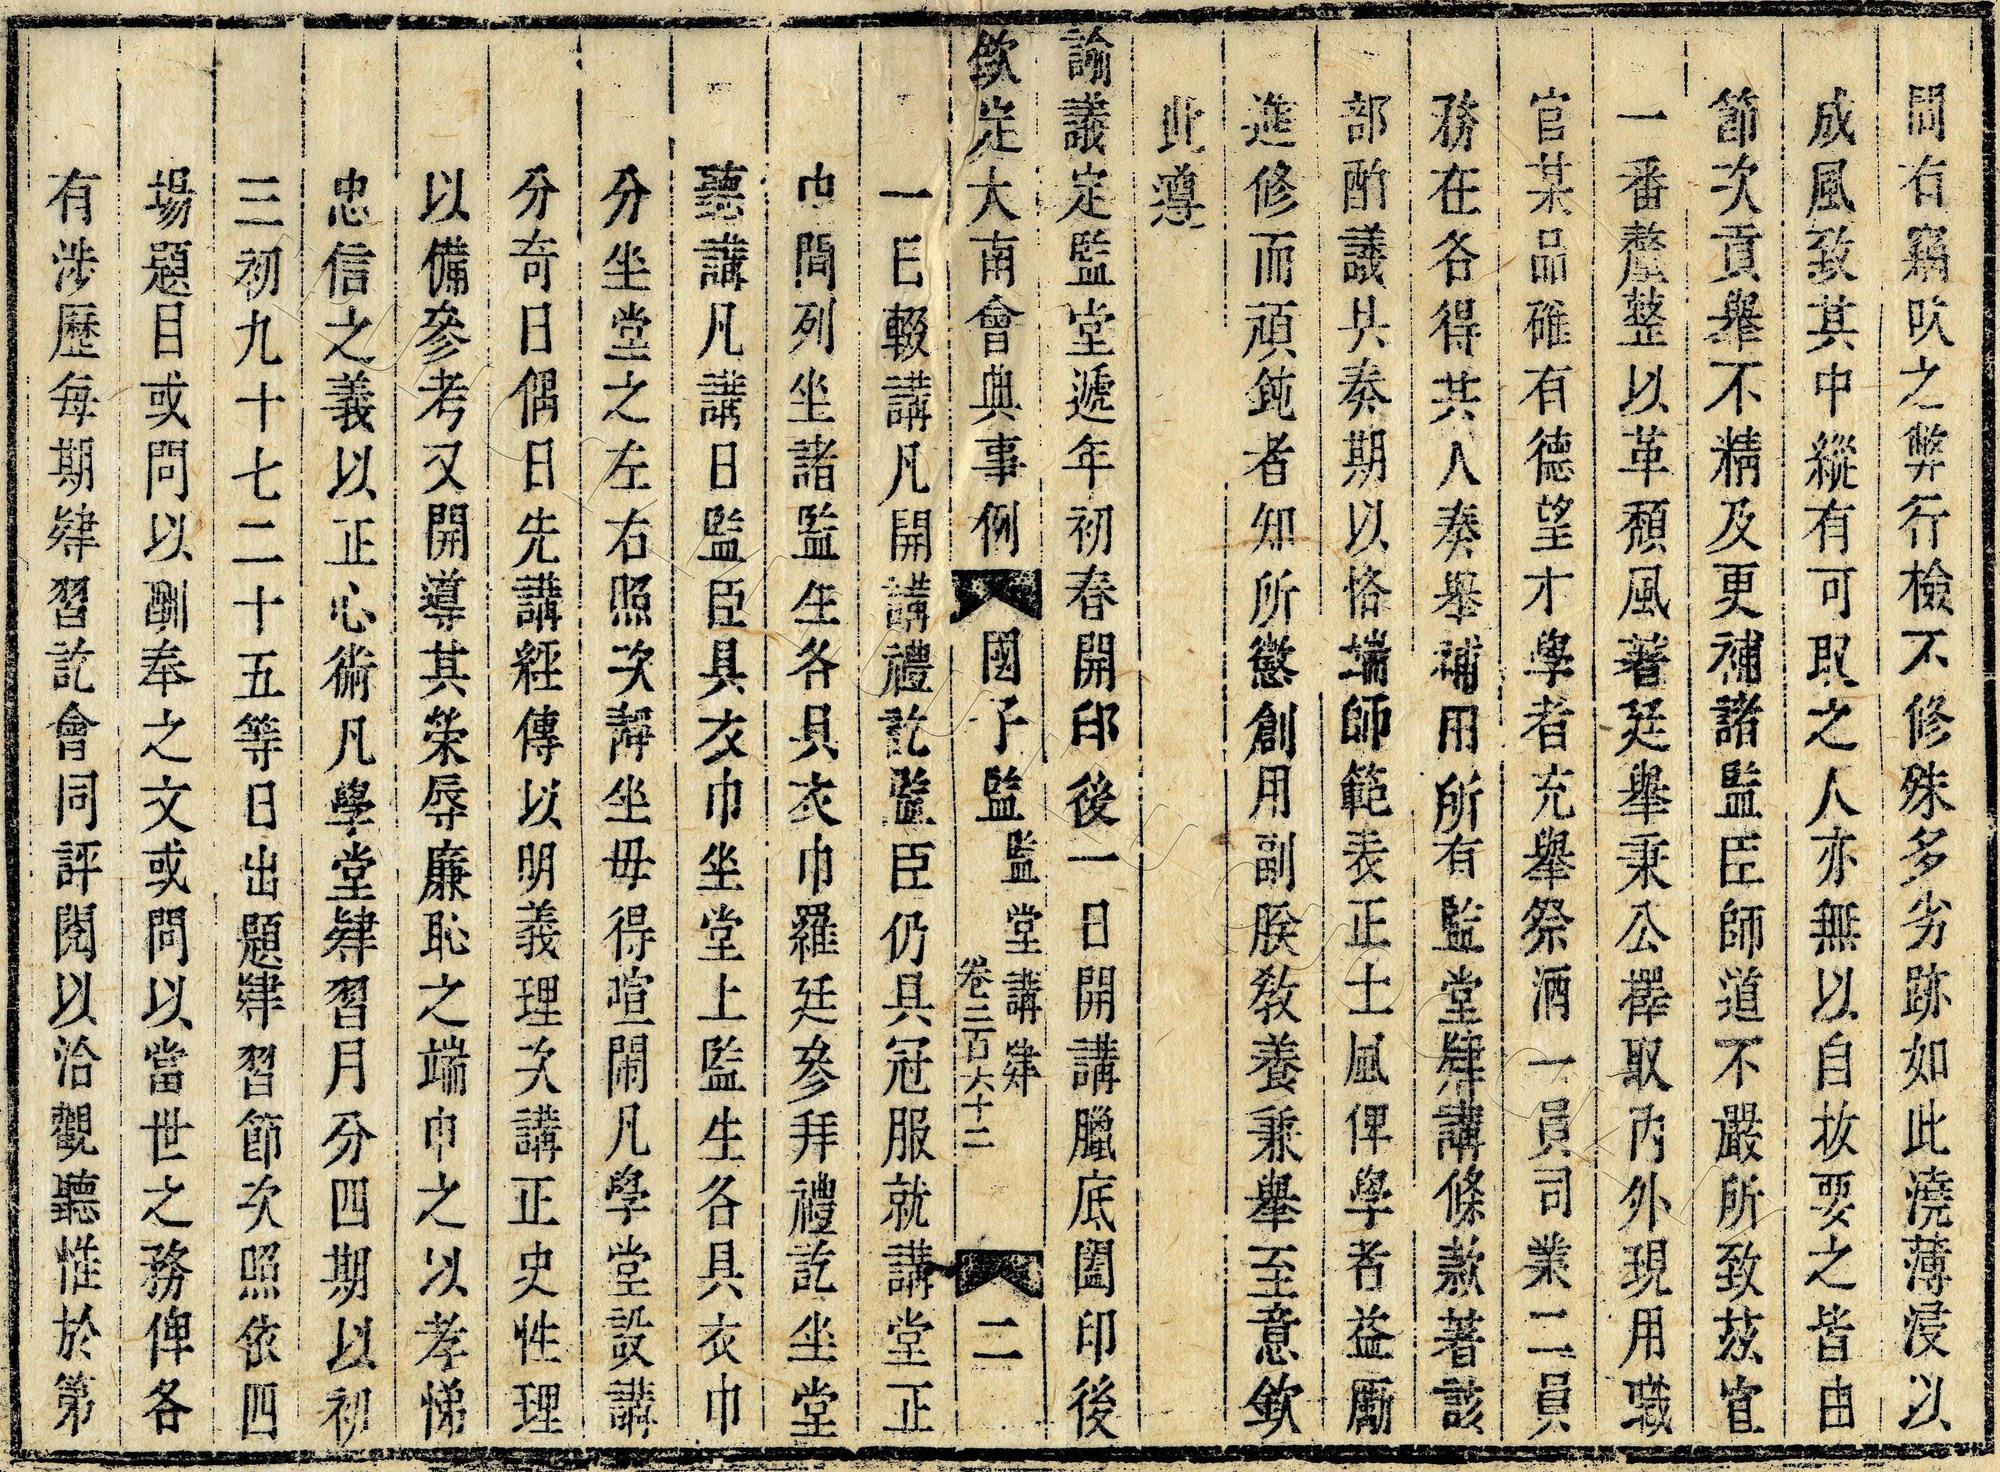 間有竊吹之弊行檢不修殊多劣跡如此澆薄浸以
成風致其中縱有可取之人亦無以自拔要之皆由
節次貢舉不精及更補諸監臣師道不嚴所致茲宜
一番釐整以革頹風著廷舉秉公擇取內外現用職
官某品確有德望才學者充舉祭酒一員司業二員
務在各得其人奏舉補用所有監堂肄講條款著該
部酌議具奏期以恪端師範表正士風俾學者益勵
進修而頑鈍者知所懲創用副朕敎養兼舉至意欽
此遵
諭議定監堂遞年初春開印後一日開講臘底闔印後
欽定大南會典事例 國子監 監堂講肄 卷二百六十二 二
一日輟講凡開講禮訖監臣仍具冠服就講堂正
中間列坐諸監生各具衣巾羅廷參拜禮訖坐堂
聽講凡講日監臣具衣巾坐堂上監生各具衣巾
分坐堂之左右照次靜坐毋得喧鬧凡學堂設講
分奇日偶日先講經傳以明義理次講正史性理
以備參考又開導其榮辱廉恥之端申之以孝悌
忠信之義以正心術凡學堂肄習月分四期以初
三初九十七二十五等日出題肄習節次照依四
場題目或問以酬奉之文或問以當世之務俾各
有涉歷每期肄習訖會同評閱以洽觀聽惟於第